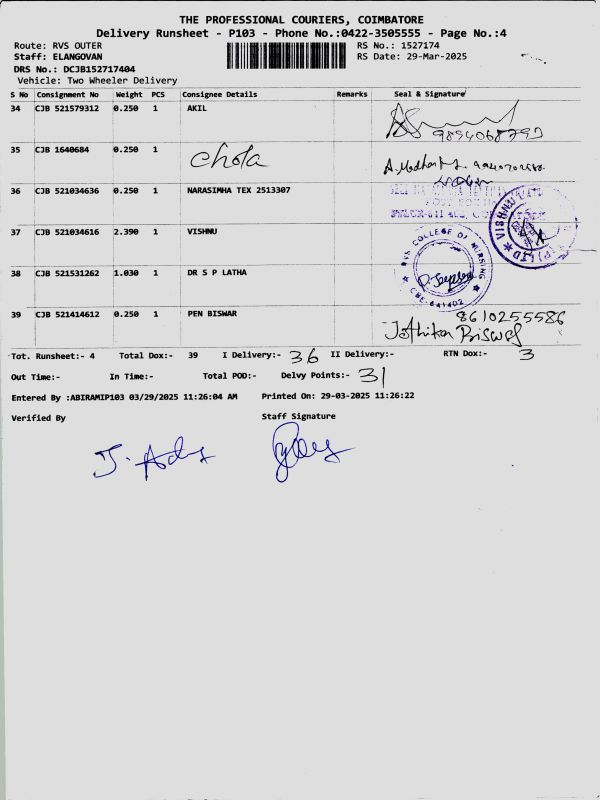 THE PROFESSIONAL COURIERS, COIMBATORE
Delivery Runsheet - P103 - Phone No.:0422-3505555 - Page No.:4
Route: RVS OUTER
RS No.: 1527174
Staff: ELANGOVAN
RS Date: 29-Mar-2025
DRS No.: DCJB152717404
Vehicle: Two Wheeler Delivery
S No Consignment No Weight PCS Consignee Details Remarks Seal & Signature
34 CJB 521579312 0.250 1 AKIL
35 CJB 1640684 0.250 1 chola
36 CJB 521034636 0.250 1 NARASIMHA TEX 2513307
37 CJB 521034616 2.390 1 VISHNU
VISHNU
(P) LTD
38 CJB 521531262 1.030 1 DR S P LATHA
RVS COLLEGE OF NURSING
CBE-641402
39 CJB 521414612 0.250 1 PEN BISWAR
8610255586
Jothikar Biswas
Tot. Runsheet:- 4 Total Dox:- 39 I Delivery:- 36 II Delivery:- RTN Dox:- 3
Out Time:- In Time:- Total POD:- Delvy Points:- 31
Entered By :ABIRAMIP103 03/29/2025 11:26:04 AM Printed On: 29-03-2025 11:26:22
Verified By Staff Signature